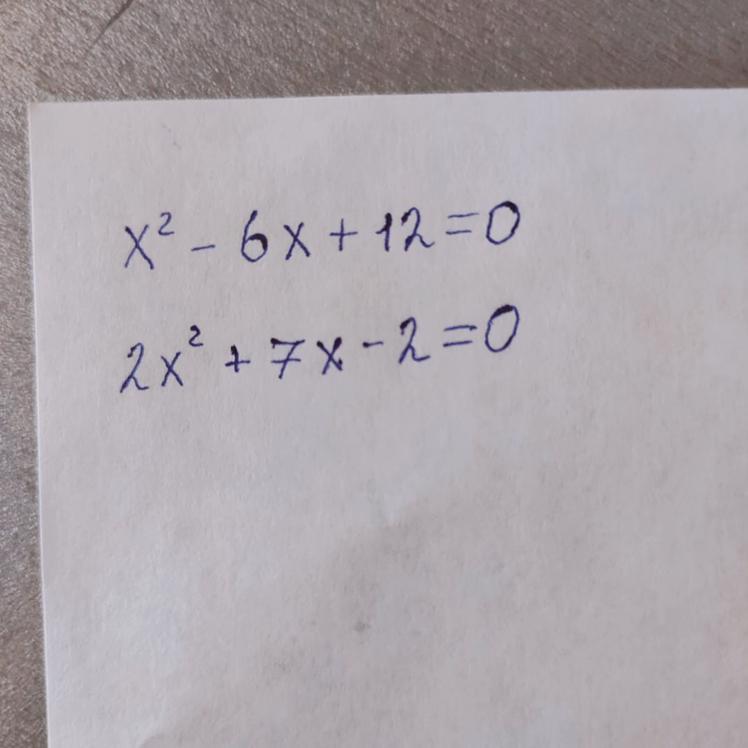 x² - 6x + 12 = 0
2x² + 7x - 2 = 0